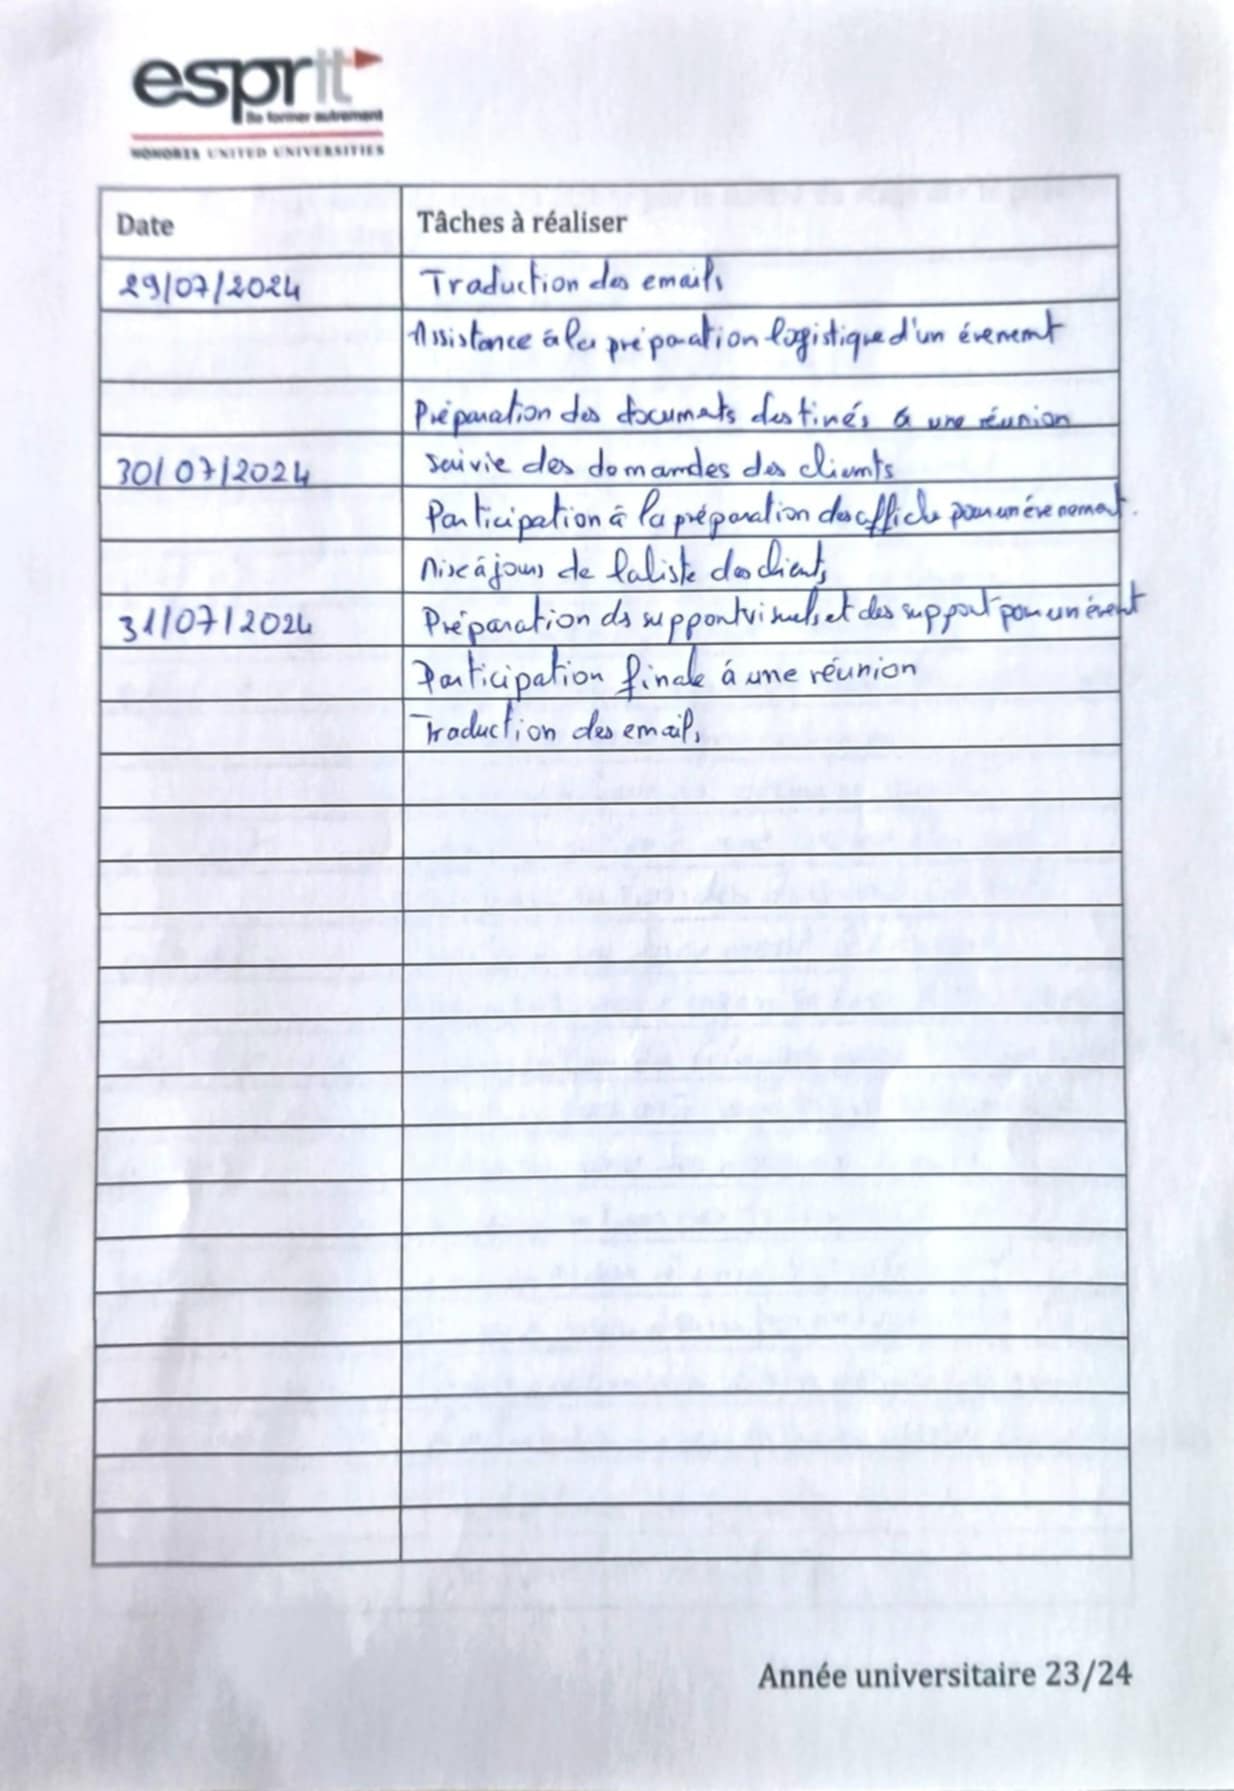 esprit
Se former autrement
HONORIS UNITED UNIVERSITIES
Date Tâches à réaliser
29/07/2024 Traduction des emails
Assistance à la préparation logistique d'un évenement
Préparation des documents destinés à une réunion
30/07/2024 Suivie des demandes des clients
Participation à la préparation des affiche pour un évenement.
Mise à jours de la liste des clients
31/07/2024 Préparation ds support visuels et des support pour un évent
Participation finale à une réunion
Traduction des emails
Année universitaire 23/24